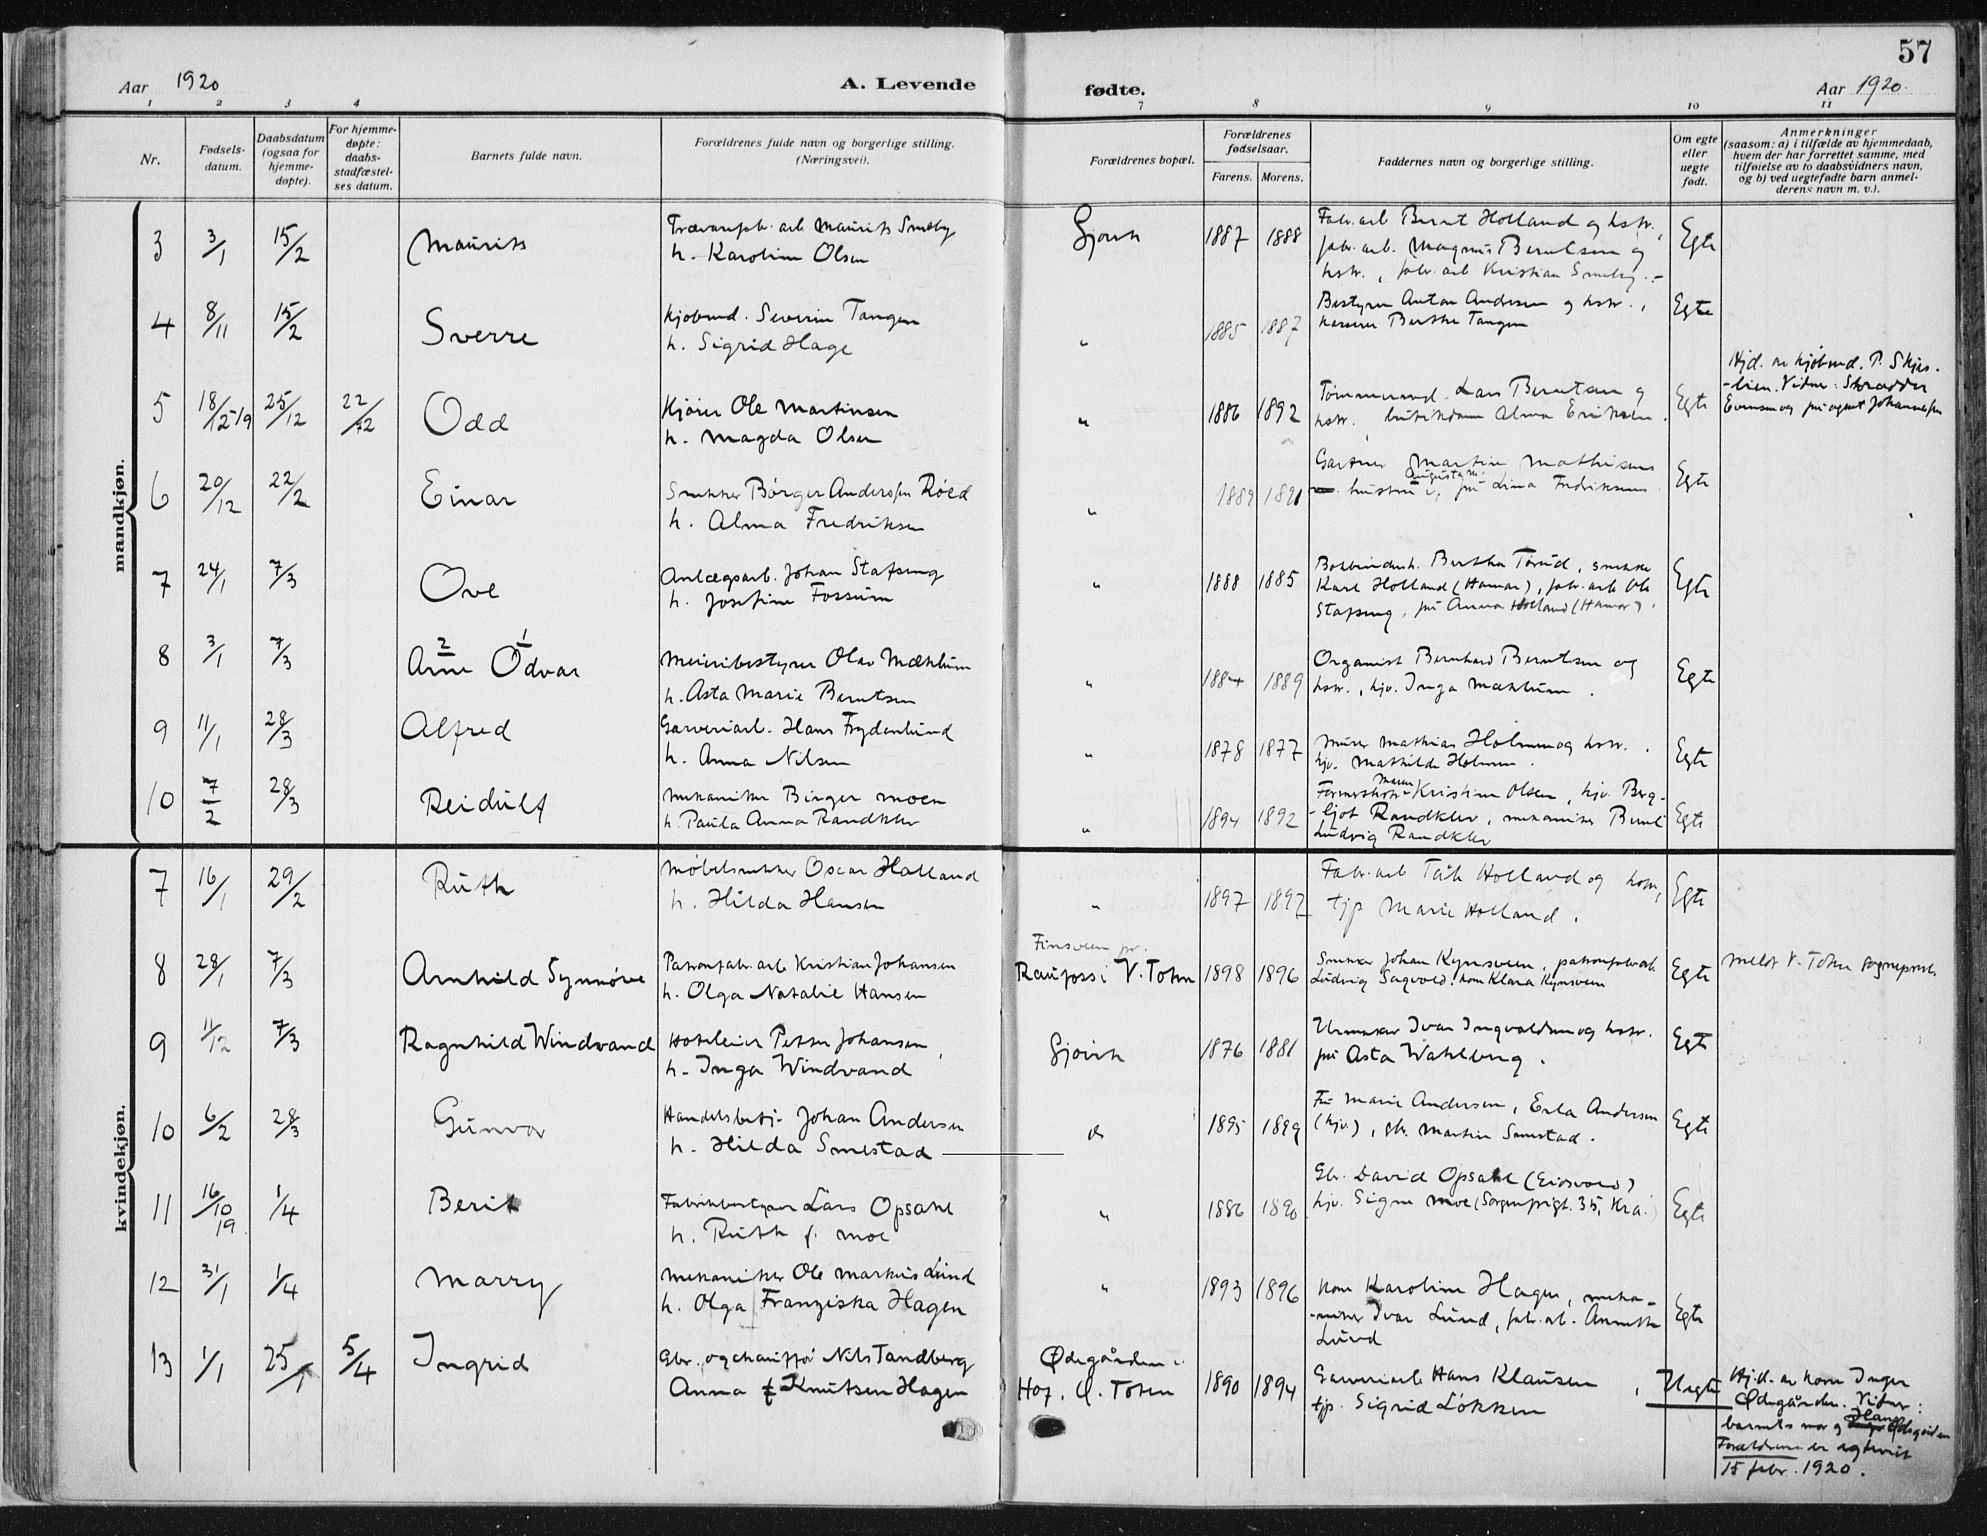 57
Aar 1920
A. Levende
fødte.
Aar 1920.
1 2 3 4 7 8 9 10 11
Nr.
Fødsels-
datum.
Daabsdatum
(ogsaa for
hjemme-
døpte).
For hjemme-
døpte:
daabs-
stadfæstel-
ses datum.
Barnets fulde navn.
Forældrenes fulde navn og borgerlige stilling.
(Næringsvei).
Forældrenes bopæl.
Forældrenes
fødselsaar.
Farens. Morens.
Faddernes navn og borgerlige stilling.
Om egte
eller
uegte
født.
Anmerkninger
(saasom: a) i tilfælde av hjemmedaab,
hvem der har forrettet samme, med
tilføielse av to daabsvidners navn,
og b) ved uegtefødte barn anmel-
derens navn m. v.).
mandkjøn.
3 3/1 15/2 Maurits
Trævarefabr. arb. Maurits Smeby
h. Karoline Olsen
Gjøvik 1887 1888
Fabr. arb Bernt Holland og hstr.,
fabr. arb. Magnus Berntsen og
hstr., fabr. arb Kristian Smeby.
Egte
4 8/11 15/2 Sverre
Kjøbmd. Severin Tangen
h. Sigrid Hage
" 1885 1887
Bestyrer Anton Andersen og hstr.,
kasserer Berthe Tangen
Egte
5 18/12 19 25/12 22/2 Odd
Kjører Ole Martinsen
h. Magda Olsen
" 1886 1892
Tømmermand Lars Berntsen og
hstr., butikdame Alma Eriksen.
Egte
Hjd. av kjøbmd. P. Skjes-
-lien. Vidner: Skrædder
6 20/12 22/2 Einar
Snekker Børger Andersen Røed
h. Alma Fredriksen
" 1889 1891
Gartner Martin Mathisens
hustru Augusta M., frk Lina Fredriksens
Egte
7 24/1 7/3 Ove
Anlægsarb. Johan Stafseng
h. Josefine Fossum
" 1888 1885
Bokbinderh. Bertha Torud, snekker
Karl Holland (Hamar), fabr. arb Ole
Stafseng, frk Anna Holland (Hamar).
Egte
8 3/1 7/3 2 Arne 1 Odvar
Meieribestyrer Olav Mæhlum
h. Asta Marie Berntsen
" 1884 1889
Organist Bernhard Berntsen og
hstr., hjv. Inga Mæhlum.
Egte
9 11/1 28/3 Alfred
Garveriarb. Hans Frydenlund
h. Anna Nilsen
" 1878 1877
Murer Mathias Holmen og hstr.
hjv. Mathilde Holmen.
Egte
10 7/2 28/3 Reidulf
Mekaniker Birger Moen
h. Paula Anna Randklev
" 1894 1892
Maren Kristine Olsen, hjv. Berg-
-ljot Randklev, mekaniker Bernt
Ludvig Randklev
Egte
kvindekjøn.
7 16/1 29/2 Ruth
Møbelsnekker Oscar Holland
h. Hilda Hansen
" 1897 1897
Fabr. arb Holland og hstr,
tjp Marie Holland.
Egte
8 28/1 7/3 Arnhild Synnøve
Patronfabr. arb Kristian Johansen
h. Olga Natalie Hansen
Finsveen pr.
Raufoss i V. Toten 1898 1896
Snekker Johan Kynsveen, patronfabr.arb.
Ludvig Sagvold, kone Klara Kynsveen
Egte
Meldt V. Toten sogneprest
9 11/12 7/3 Ragnhild Windvand
Hoteleier Petter Johansen
h. Inga Windvand
Gjøvik 1876 1881
Urmaker Ivar Ingvaldsen og hstr.
frk Asta Wahlberg.
Egte
10 6/2 28/3 Gunvor
Handelsbetj. Johan Andersen
h. Hilda Smestad
1895 1899
Frk Marie Andersen, Erla Andersen
(hjv.), gbr. Martin Smestad.
Egte
11 16/10 19 1/4 Berit
Fabrikbestyrer Lars Opsahl
h. Ruth f. Moe
" 1886 1890
Gbr. David Opsahl (Eidsvold)
hjv. Signe Moe (Sorgenfrigt. 35, Kra.)
Egte
12 31/1 1/4 Marry
Mekaniker Ole Markus Lund
h. Olga Franziska Hagen
" 1893 1896
Kone Karoline Hagen, meka-
-niker Ivar Lund, fabr. arb. Annette
Lund
Egte
13 1/1 25/1 5/4 Ingrid
Gbr. og chauffør Nils Tandberg
Anna Knutsen Hagen
Ødegården
Hof, Ø. Toten 1890 1894
Garveriarb Hans Klausen,
tjp. Sigrid Løkken
Uegte
Hjd. av kone Inger
Ødegården. Vidner:
barnets mor og Hans Ødegården
Forældrene er egteviet
15 febr. 1920.